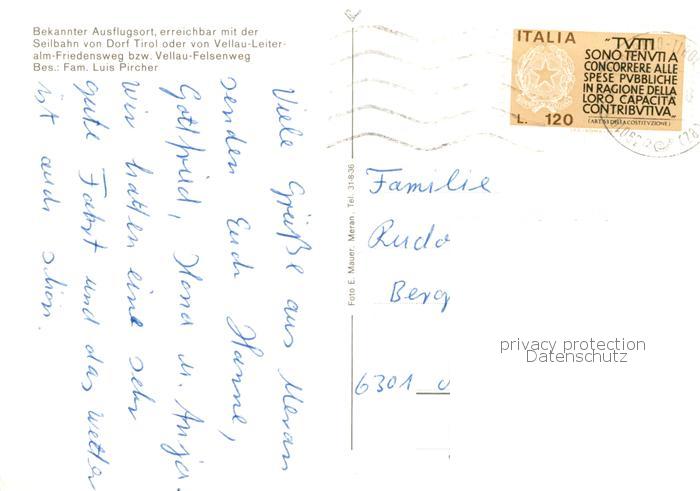 Bekannter Ausflugsort, erreichbar mit der
Seilbahn von Dorf Tirol oder von Vellau-Leiter-
alm-Friedensweg bzw. Vellau-Felsenweg
Bes.: Fam. Luis Pircher
Viele Grüße aus Meran
senden Euch Hanne,
Gottfried, Ilona u. Anja.
Wir hatten eine sehr
gute Fahrt und das Wetter
ist auch schön.
Foto E. Mauer, Meran, Tel. 31-8-36
ITALIA
"TVTTI
SONO TENVTI A
CONCORRERE ALLE
SPESE PVBBLICHE
IN RAGIONE DELLA
LORO CAPACITÀ
CONTRIBVTIVA"
(ART. 53 DELLA COSTITVZIONE)
L. 120
Familie
Rudo
Berg
6301
privacy protection
Datenschutz